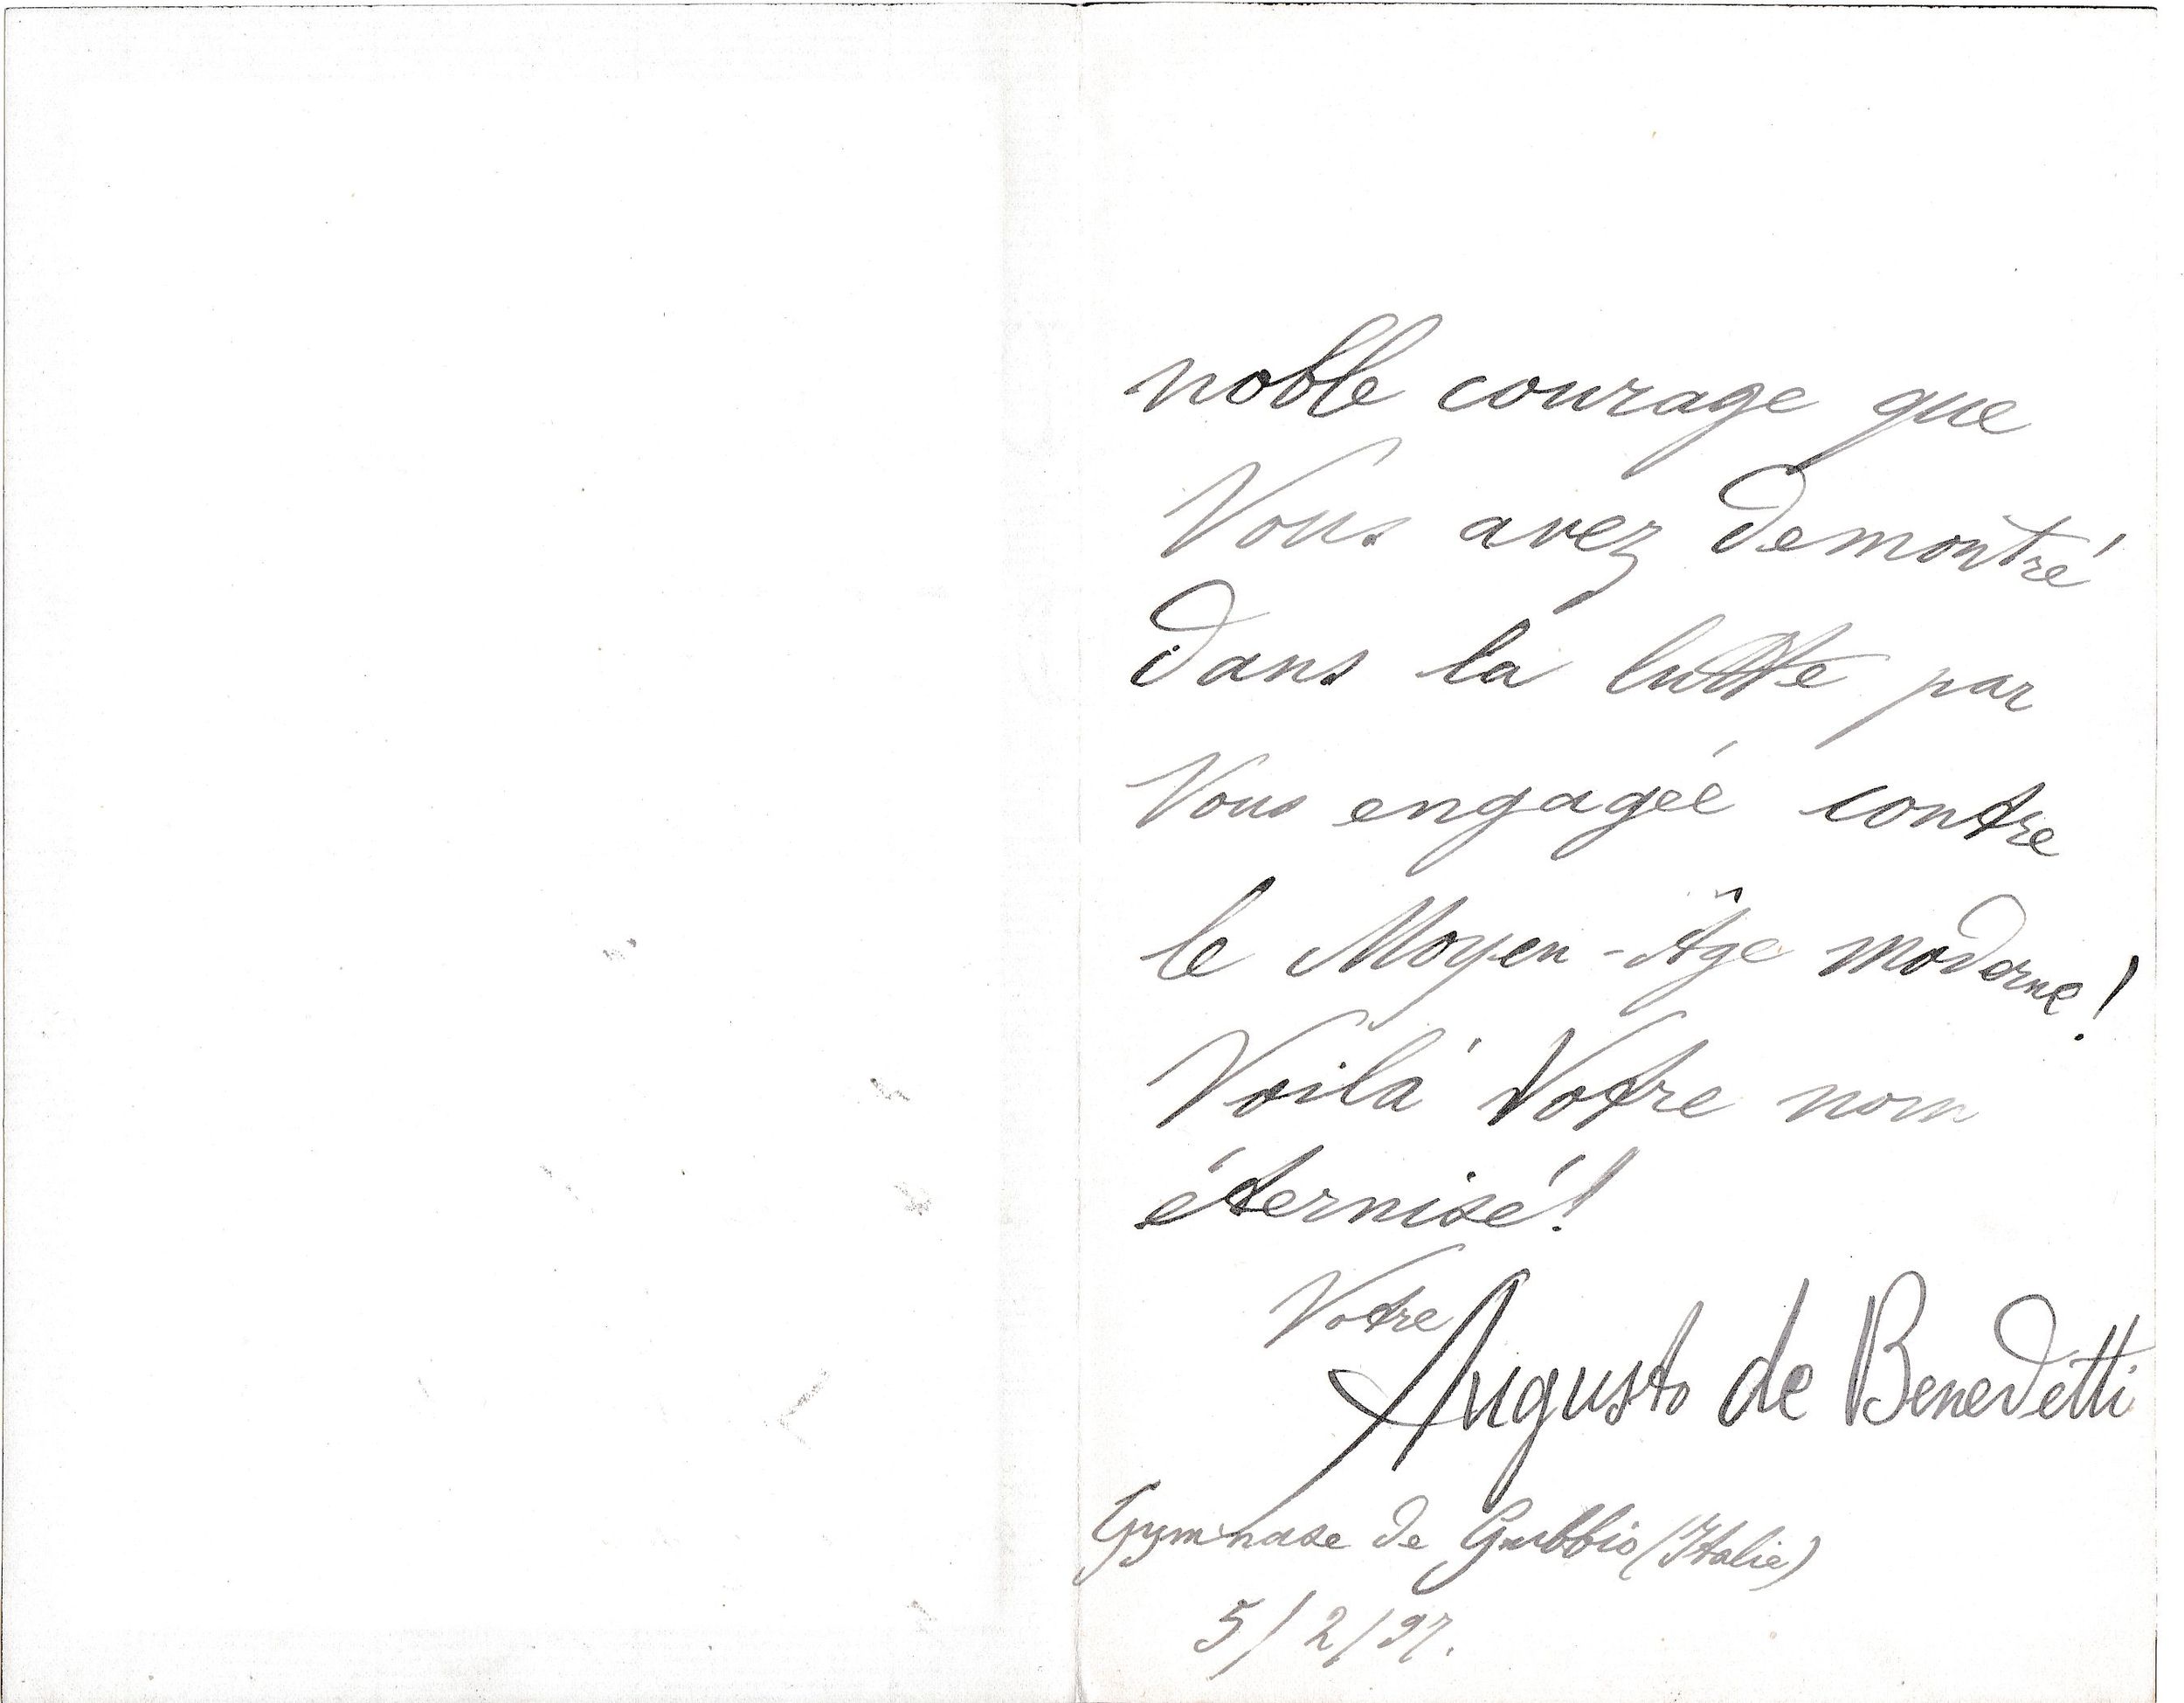 noble courage que
Vous avez demontré
dans la lutte par
Vous engagée contre
le Moyen-Âge moderne!
Voilà Votre nom
éternisé!
Votre
Augusto de Benedetti
Gymnase de Gubbio (Italie)
5/2/97.